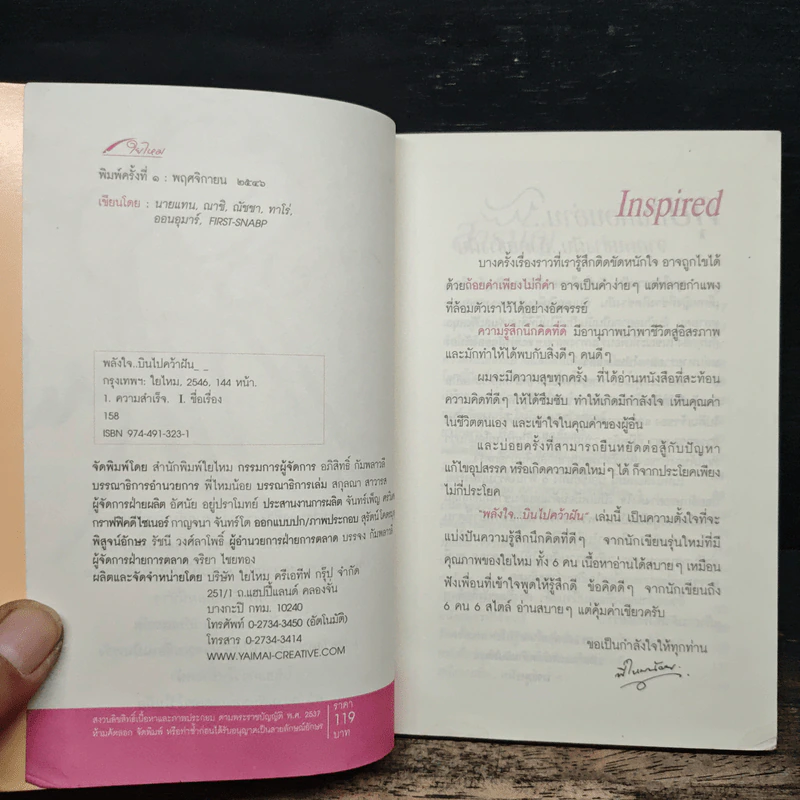 ใยไหม
พิมพ์ครั้งที่ ๑ : พฤศจิกายน ๒๕๔๖
เขียนโดย : นายแทน, ณาซิ, ณัชชา, ทาโร่,
ออนอุมาร์, FIRST-SNABP
พลังใจ..บินไปคว้าฝัน_ _
กรุงเทพฯ: ใยไหม, 2546. 144 หน้า.
1. ความสำเร็จ. I. ชื่อเรื่อง
158
ISBN 974-491-323-1
จัดพิมพ์โดย สำนักพิมพ์ใยไหม กรรมการผู้จัดการ อภิสิทธิ์ กัมพลาวลี
บรรณาธิการอำนวยการ พี่ไหมน้อย บรรณาธิการเล่ม สกุลณา สาวารส
ผู้จัดการฝ่ายผลิต อัศนัย อยู่ปราโมทย์ ประสานงานการผลิต จันทร์เพ็ญ
กราฟฟิคดีไซเนอร์ กาญจนา จันทร์โต ออกแบบปก/ภาพประกอบ สุรัตน์
พิสูจน์อักษร รัชนี วงศ์ลาโพธิ์ ผู้อำนวยการฝ่ายการตลาด บรรจง กัมพลาวลี
ผู้จัดการฝ่ายการตลาด จริยา ไชยทอง
ผลิตและจัดจำหน่ายโดย บริษัท ใยไหม ครีเอทีฟ กรุ๊ป จำกัด
251/1 ถ.แฮปปี้แลนด์ คลองจั่น
บางกะปิ กทม. 10240
โทรศัพท์ 0-2734-3450 (อัตโนมัติ)
โทรสาร 0-2734-3414
WWW.YAIMAI-CREATIVE.COM
สงวนลิขสิทธิ์เนื้อหาและภาพประกอบ ตามพระราชบัญญัติ พ.ศ. 2537
ห้ามคัดลอก จัดพิมพ์ หรือทำซ้ำก่อนได้รับอนุญาตเป็นลายลักษณ์อักษร
ราคา
119
บาท
Inspired
บางครั้งเรื่องราวที่เรารู้สึกติดขัดหนักใจ อาจถูกไขได้
ด้วยถ้อยคำเพียงไม่กี่คำ อาจเป็นคำง่ายๆ แต่ทลายกำแพง
ที่ล้อมตัวเราไว้ได้อย่างอัศจรรย์
ความรู้สึกนึกคิดที่ดี มีอานุภาพนำพาชีวิตสู่อิสรภาพ
และมักทำให้ได้พบกับสิ่งดีๆ คนดีๆ
ผมจะมีความสุขทุกครั้ง ที่ได้อ่านหนังสือที่สะท้อน
ความคิดที่ดีๆ ให้ได้ซึมซับ ทำให้เกิดมีกำลังใจ เห็นคุณค่า
ในชีวิตตนเอง และเข้าใจในคุณค่าของผู้อื่น
และบ่อยครั้งที่สามารถยืนหยัดต่อสู้กับปัญหา
แก้ไขอุปสรรค หรือเกิดความคิดใหม่ๆ ได้ ก็จากประโยคเพียง
ไม่กี่ประโยค
"พลังใจ...บินไปคว้าฝัน" เล่มนี้ เป็นความตั้งใจที่จะ
แบ่งปันความรู้สึกนึกคิดที่ดีๆ จากนักเขียนรุ่นใหม่ที่มี
คุณภาพของใยไหม ทั้ง 6 คน เนื้อหาอ่านได้สบายๆ เหมือน
ฟังเพื่อนที่เข้าใจพูดให้รู้สึกดี ข้อคิดดีๆ จากนักเขียนถึง
6 คน 6 สไตล์ อ่านสบายๆ แต่คุ้มค่าเชียวครับ
ขอเป็นกำลังใจให้ทุกท่าน
พี่ไหมน้อย.